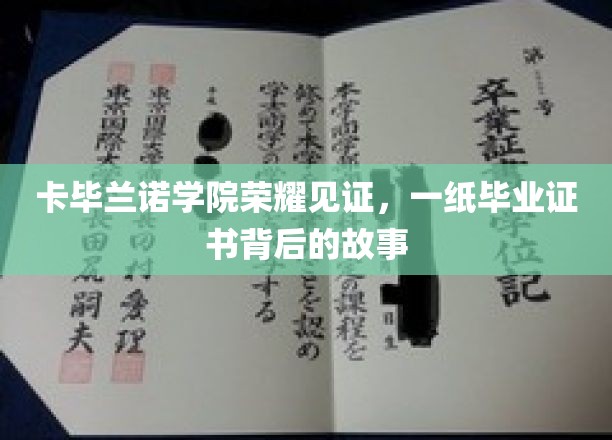 卡毕兰诺学院荣耀见证，一纸毕业证
书背后的故事
第 号
卒業証 学位記
本学商学部 定の課程を
修めて本学 ことを認め
学士(商学)の する
平成
東京国際大 村愛理
東京国際大 長田尻嗣夫